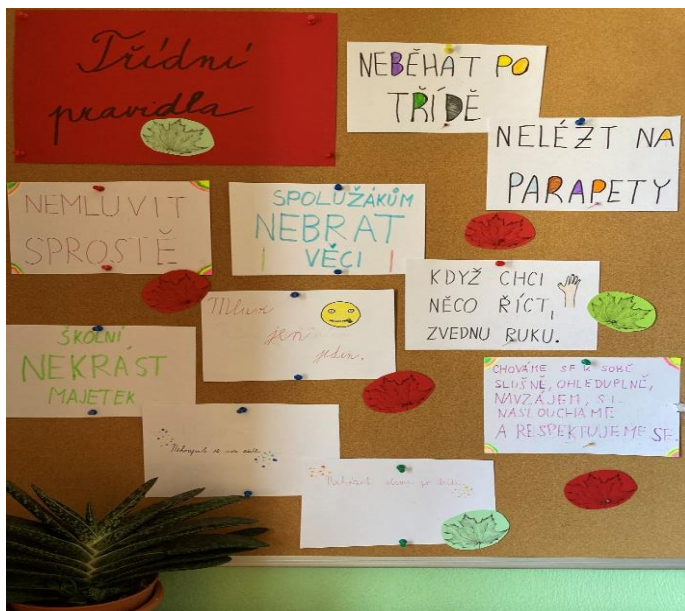 Třídní
pravidla
NEBĚHAT PO
TŘÍDĚ
NELÉZT NA
PARAPETY
NEMLUVIT
SPROSTĚ
SPOLUŽÁKŮM
NEBRAT
VĚCI
KDYŽ CHCI
NĚCO ŘÍCT,
ZVEDNU RUKU.
Mluví
jen
jeden.
ŠKOLNÍ
NEKRÁST
MAJETEK
CHOVÁME SE K SOBĚ
SLUŠNĚ, OHLEDUPLNĚ,
NAVZÁJEM, SI
NASLOUCHÁME
A RESPEKTUJEME SE.